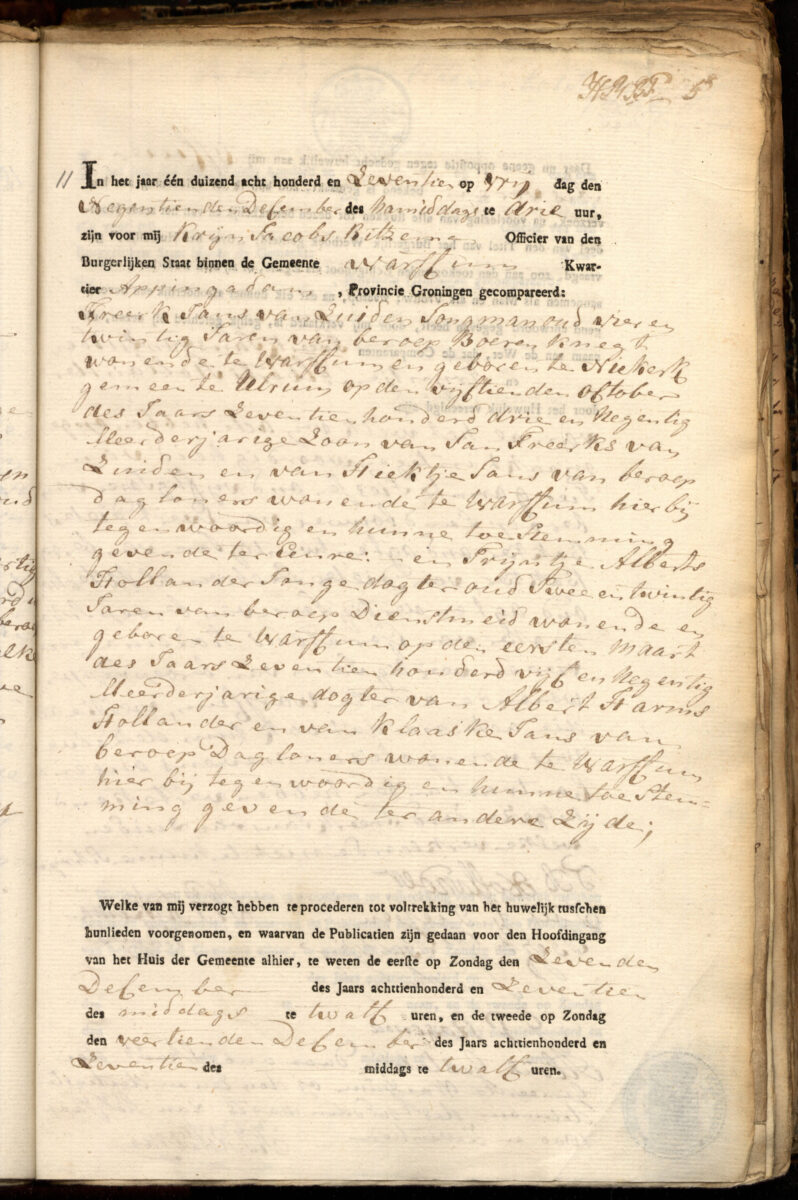 5
11 In het jaar één duizend acht honderd en Zeventien op Vrij dag den
Negentienden December des Namiddags te drie uur,
zijn voor mij Krijn Jacobs Ritzema Officier van den
Burgerlijken Staat binnen de Gemeente Warffum Kwar-
tier Appingadam, Provincie Groningen gecompareerd:
Freerk Jans van Zuiden Jongman oud vier en
twintig Jaren van beroep Boeren knegt
wonende te Warffum en geboren te Niekerk
gemeente Ulrum op den vijftienden october
des Jaars Zeventien honderd drie en Negentig
Meerderjarige Zoon van Jan Freerks van
Zuiden en van Hiektje Jans van beroep
dagloners wonende te Warffum hier bij
tegenwoordig en hunne toestemming
gevende ter Eenre: en Trijntje Alberts
Hollander Jonge dogter oud Twee en twintig
Jaren van beroep Dienstmeid wonende en
geboren te Warffum op den eersten Maart
des Jaars Zeventien honderd vijf en Negentig
Meerderjarige dogter van Albert Harms
Hollander en van Klaaske Jans van
beroep Dagloners wonende te Warffum
hier bij tegenwoordig en hunne toestem=
ming gevende ter andere Zijde;
Welke van mij verzogt hebben te procederen tot voltrekking van het huwelijk tusschen
hunlieden voorgenomen, en waarvan de Publicatien zijn gedaan voor den Hoofdingang
van het Huis der Gemeente alhier, te weten de eerste op Zondag den Zevenden
December des Jaars achttienhonderd en Zeventien
des middags te twalf uren, en de tweede op Zondag
den veertienden December des Jaars achttienhonderd en
Zeventien des middags te twalf uren.